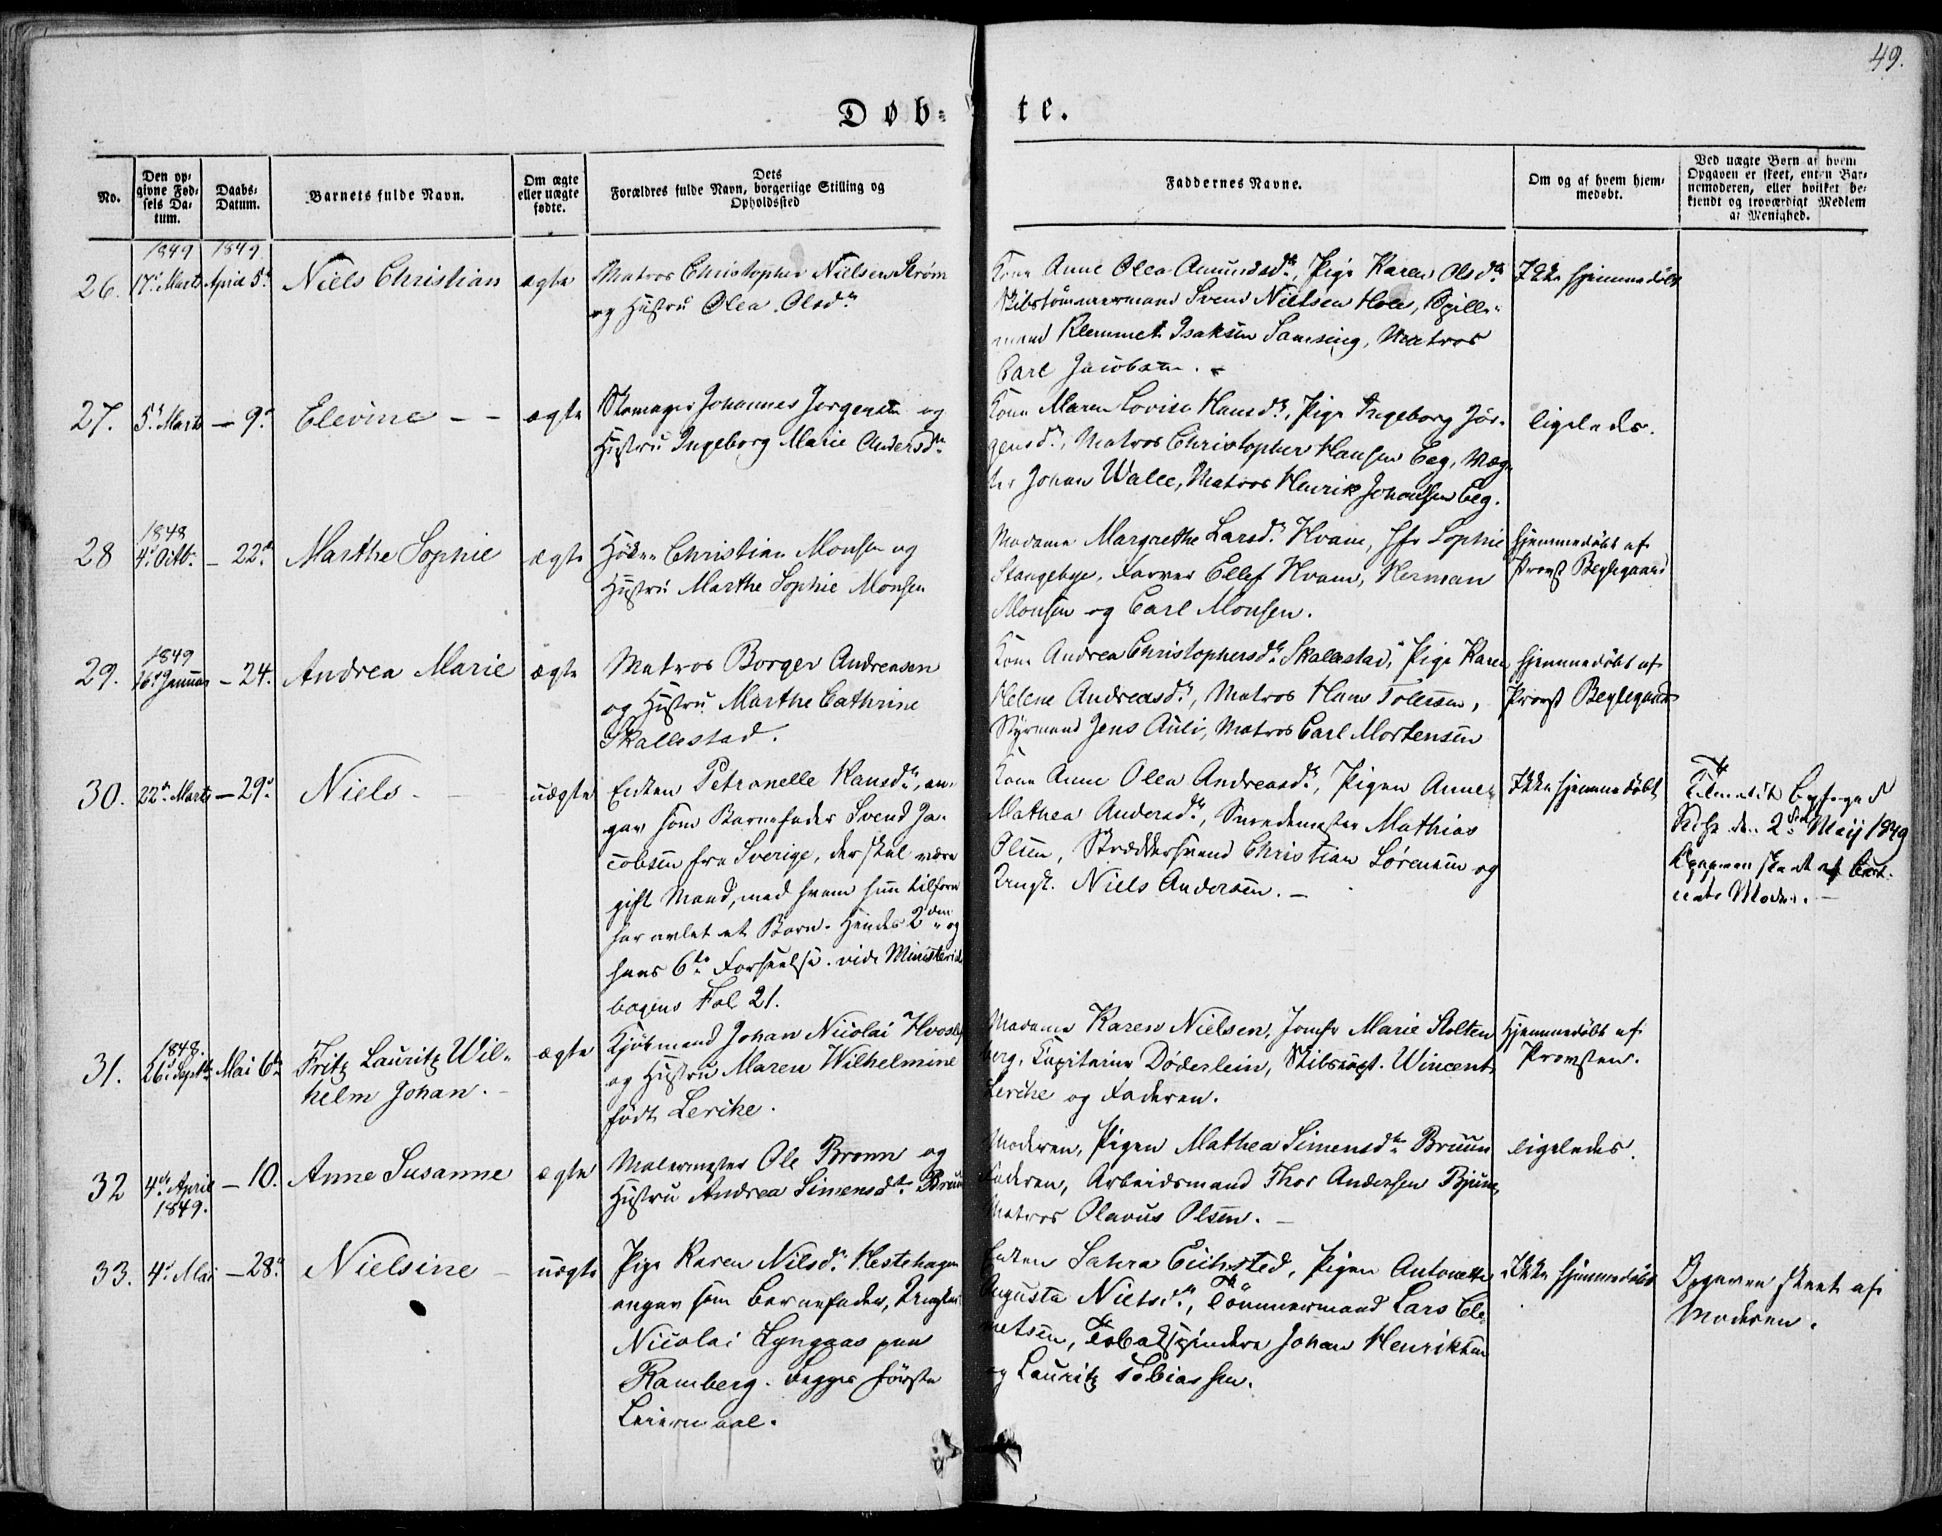 49.
Døb-te.
No.
Den opgivne Fødsels Datum.
Daabs-Datum.
Barnets fulde Navn.
Om ægte eller uægte fødte.
Dets Forældres fulde Navn, borgerlige Stilling og Opholdssted
Faddernes Navne.
Om og af hvem hjemmedøbt.
Ved uægte Børn af hvem Opgaven er skeet, enten Barnemoderen, eller hvilket bekjendt og troværdigt Medlem af Menighed.
1849 1849
26. 17de Marts April 5te Niels Christian ægte
Matros Christopher Nielsen Strøm
og Hustru Olea Olsdtr
Kone Anne Olea Amundsdtr, Pige Karen Olsdtr
Skibstømmermand Svend Nielsen Hole, Spille-
mand Klemmet Isaksen Samsing, Matros
Carl Jacobsen.
Ikke hjemmedøbt
27. 5te Marts — 9de Elevine — — ægte
Skomager Johannes Jørgensen og
Hustru Ingeborg Marie Andersdtr
Kone Maren Lovise Hansdtr, Pige Ingeborg Jør-
gensdtr, Matros Christopher Hansen Eeg, Væg-
ter Johan Walle, Matros Henrik Johansen Eeg.
ligeledes.
1848
28 4de Octbr — 22de Marthe Sophie ægte
Høker Christian Monsen og
Hustru Marthe Sophie Monsen
Madame Margrethe Larsdtr Hvam, Jfr Sophie
Stangebye, Farver Ellef Hvam, Herman
Monsen og Carl Monsen.
Hjemmedøbt af
Provst Beylegaard
1849
29. 16de Januar — 24. Andrea Marie ægte
Matros Borger Andreasen
og Hustru Marthe Cathrine
Skallestad.
Kone Andrea Christophersdtr Skallestad, Pige Karen
Helene Andreasdtr, Matros Hans Tollesen,
Styrmand Jens Auli, Matros Carl Mortensen
Hjemmedøbt af
Provst Beylegaard
30. 22de Marts — 29de Niels. — uægte
Enken Petronelle Hansdtr, an-
gav som Barnefader Svend Ja-
cobsen fra Sverige, der skal være
gift Mand, med hvem hun tilforn
har avlet et Barn. Hendes 2den og
hans 6te Forseelse. vide Ministerial
bogens Fol 21.
Kone Anne Olea Andreasdtr, Pigen Anne
Mathea Andersdtr, Smedemester Mathias
Olsen, Skræddersvend Christian Sørensen og
Ungk. Niels Andersen. —
Ikke hjemmedøbt
den 2den Maij 1849
Opgaven skeet af Bar-
nets Moder. —
1848.
31. 26de Septbr Mai 6te Fritz Lauritz Wil-
helm Johan. — ægte
Kjøbmand Johan Nicolai Hvoslef
og Hustru Maren Wilhelmine
født Lerche.
Madame Karen Nielsen, Jomfr Marie Stolten
berg, Kapitaine Døderlein, Skibskapt. Wincent
Lerche og Faderen.
Hjemmedøbt af
Provsten.
32 4de April — 10. Anne Susanne ægte
1849.
Malermester Ole Bronn og
Hustru Andrea Simensdtr Bruun
Moderen, Pigen Mathea Simensdtr Bruun
Faderen, Arbeidsmand Thor Andersen Bjune,
Matros Olavus Olsen. —
ligeledes.
33. 4de Mai — 28de Nielsine — uægte
Pige Karen Nilsdtr Hestehagen
angav som Barnefader, Ungkarl
Nicolai Lynggaas paa
Ramberg. Begges første
Leiermaal.
Enken Sahra Eichsted, Pigen Antonette
Augusta Nielsdtr, Tømmermand Lars Cle-
metsen, Tobakspindere Johan Henriksen
og Lauritz Tobiassen.
Ikke hjemmedøbt
Opgaven skeet af
Moderen.